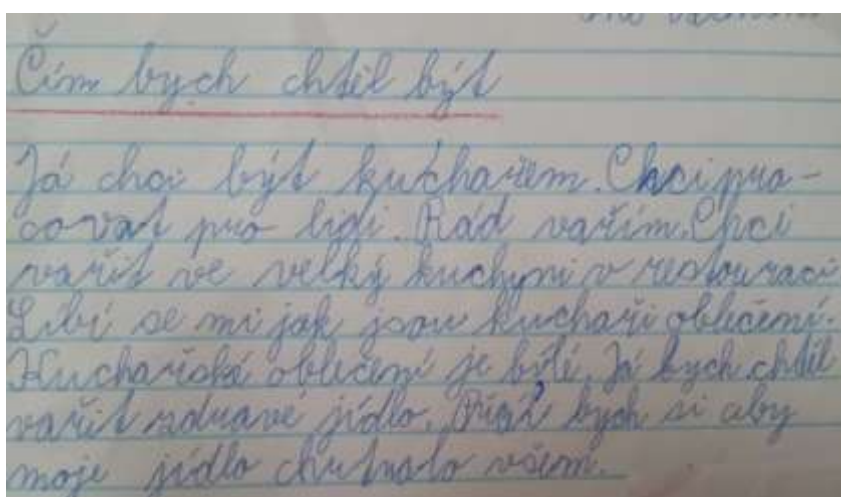 Čím bych chtěl být
Já chci být kuchařem. Chci pra-
covat pro lidi. Rád vařím. Chci
vařit ve velký kuchyni v restouraci
Libí se mi jak jsou kuchaři oblečení.
Kuchařské oblečení je bílé. Já bych chtěl
vařit zdravé jídlo. Přál bych si aby
moje jídlo chutnalo všem.